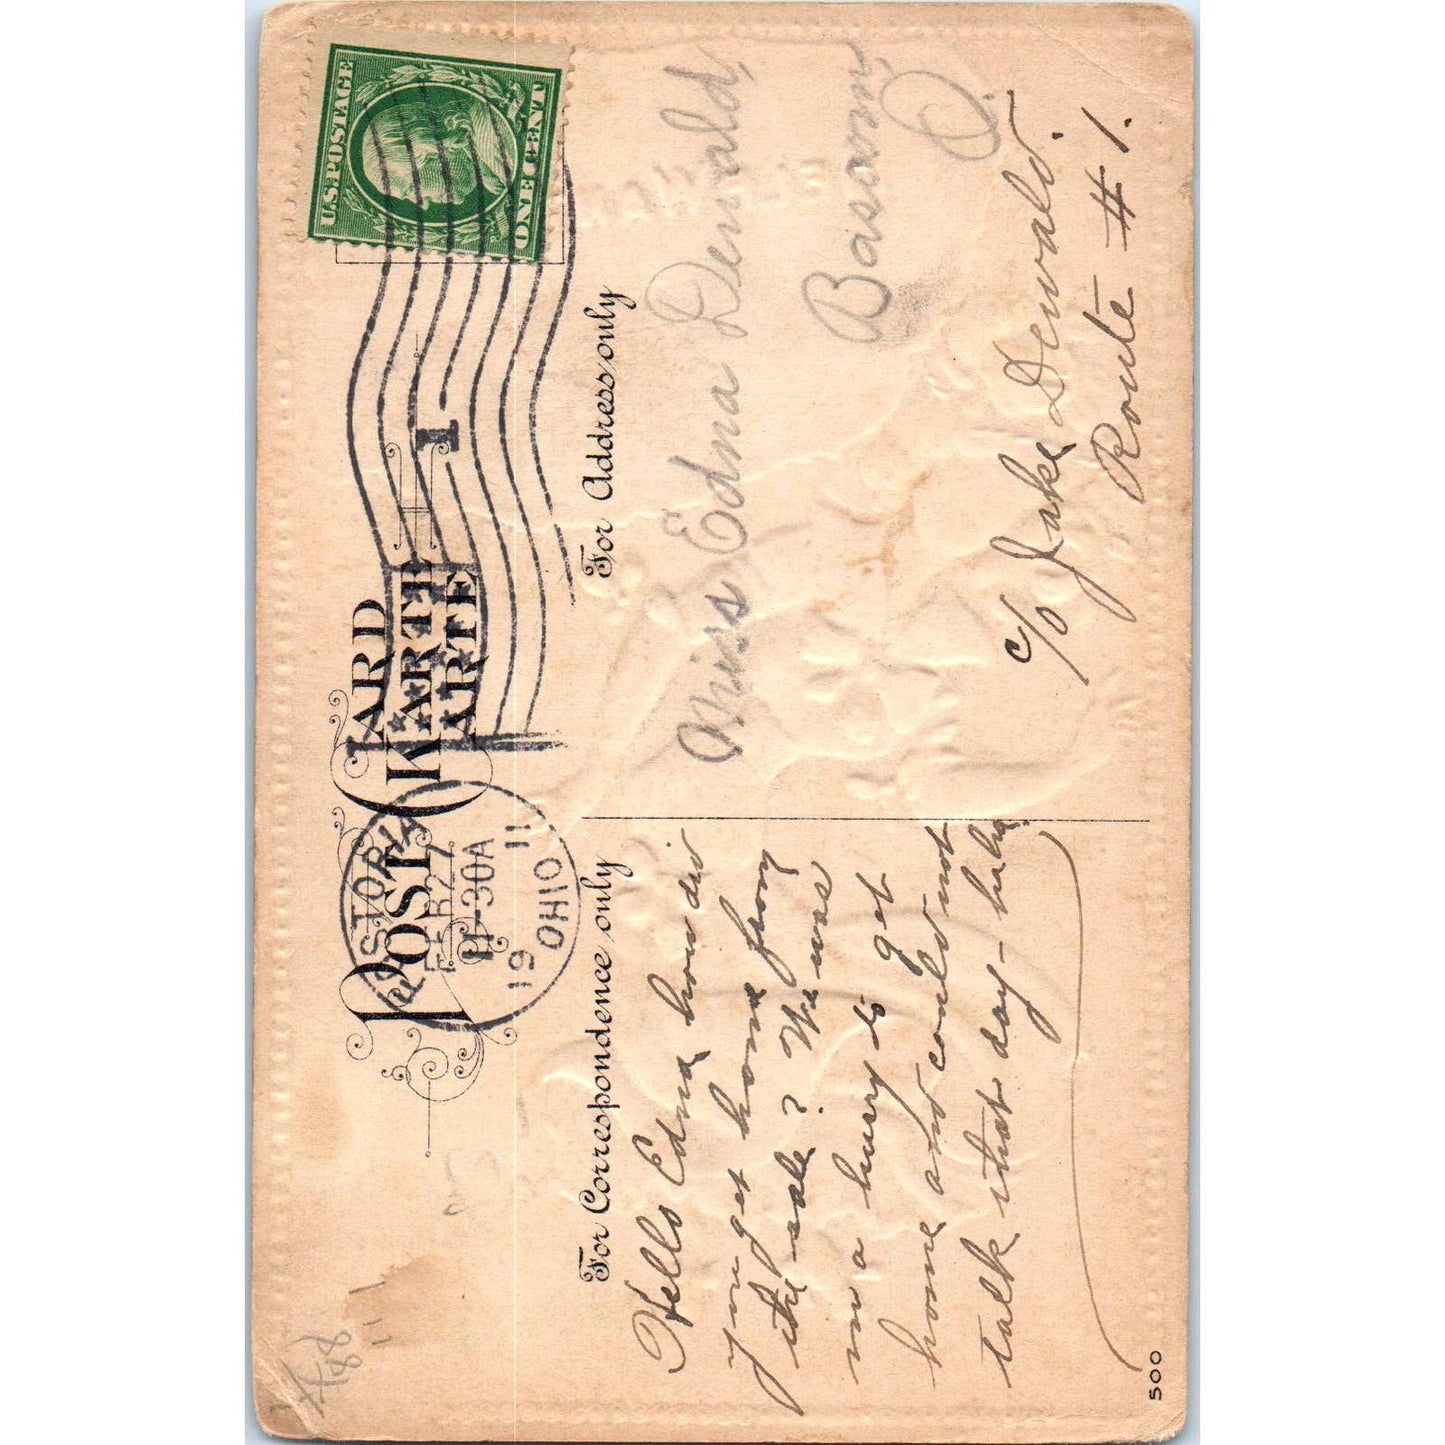 POST CARD
KARTE
CARTE
FOSTORIA
FEB 27
11-30A
19 11
OHIO
1
U.S. POSTAGE
ONE CENT
For Correspondence only
For Address only
Hello Edna how did
you get home from
the sale? We was
in a hurry to get
home and could not
talk that day-
Miss Edna Dewald,
Bascom,
O.
c/o Jake Dewald.
Route #1.
500